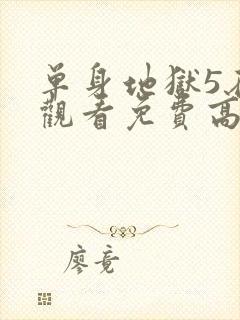 單身地獄5
觀看免費高
廖竟